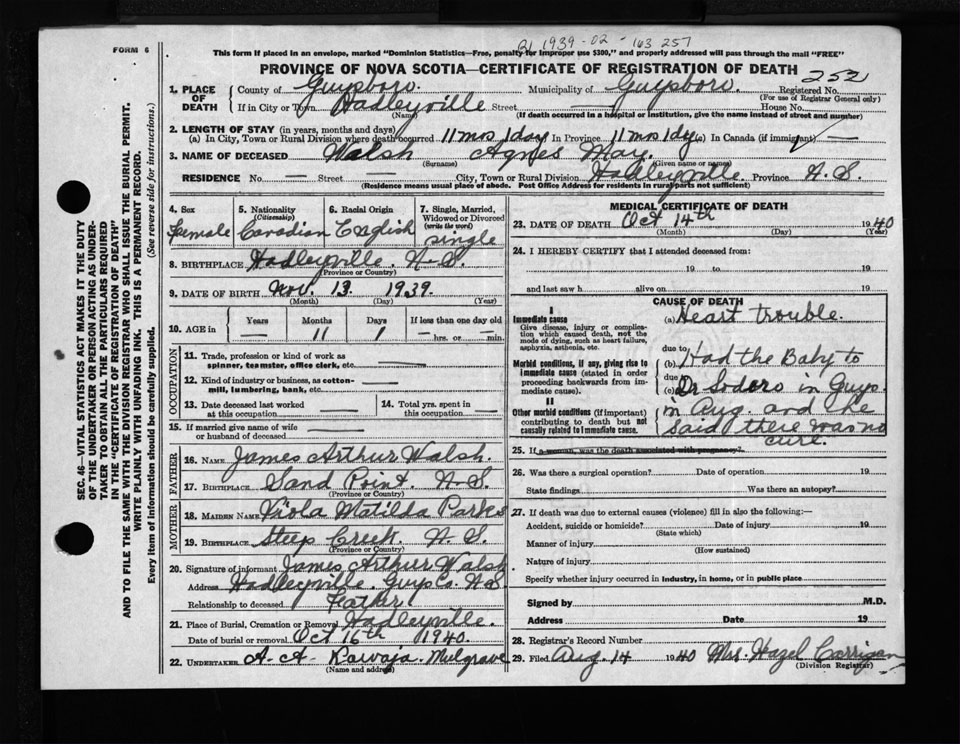 FORM 6
21 1939-02-163 257
This form if placed in an envelope, marked "Dominion Statistics—Free, penalty for improper use $300," and properly addressed will pass through the mail "FREE"
PROVINCE OF NOVA SCOTIA—CERTIFICATE OF REGISTRATION OF DEATH
252
SEC. 46—VITAL STATISTICS ACT MAKES IT THE DUTY
OF THE UNDERTAKER OR PERSON ACTING AS UNDER-
TAKER TO OBTAIN ALL THE PARTICULARS REQUIRED
IN THE "CERTIFICATE OF REGISTRATION OF DEATH"
AND TO FILE THE SAME WITH THE DIVISION REGISTRAR WHO SHALL ISSUE THE BURIAL PERMIT.
WRITE PLAINLY WITH UNFADING INK. THIS IS A PERMANENT RECORD.
Every item of information should be carefully supplied. (See reverse side for instructions.)
1. PLACE OF DEATH County of Guysboro. Municipality of Guysboro. Registered No.
(For use of Registrar General only)
If in City or Town Hadleyville Street — House No.
(Name) (If death occurred in a hospital or institution, give the name instead of street and number)
2. LENGTH OF STAY (in years, months and days)
(a) In City, Town or Rural Division where death occurred 11 mos 1 day In Province 11 mos 1 dy (c) In Canada (if immigrant) —
3. NAME OF DECEASED Walsh Agnes May.
(Surname) (Given name or names)
RESIDENCE No. — Street — City, Town or Rural Division Hadleyville Province N.S.
(Residence means usual place of abode. Post Office Address for residents in rural parts not sufficient)
4. Sex Female
5. Nationality (Citizenship) Canadian
6. Racial Origin English
7. Single, Married, Widowed or Divorced (write the word) single
8. BIRTHPLACE Hadleyville. N-S.
(Province or Country)
9. DATE OF BIRTH Nov. 13. 1939.
(Month) (Day) (Year)
10. AGE in Years Months Days If less than one day old
— 11 1 — hrs. or — min.
OCCUPATION
11. Trade, profession or kind of work as spinner, teamster, office clerk, etc. —
12. Kind of industry or business, as cotton-mill, lumbering, bank, etc. —
13. Date deceased last worked at this occupation —
14. Total yrs. spent in this occupation —
15. If married give name of wife or husband of deceased —
FATHER
16. NAME James Arthur Walsh.
17. BIRTHPLACE Sand Point. N-S.
(Province or Country)
MOTHER
18. MAIDEN NAME Viola Matilda Parks
19. BIRTHPLACE Steep Creek N. S.
(Province or Country)
20. Signature of informant James Arthur Walsh.
Address Hadleyville. Guys Co. N.S.
Relationship to deceased Father
21. Place of Burial, Cremation or Removal Hadleyville.
Date of burial or removal Oct 16th 1940.
22. UNDERTAKER A-A- Rawaja. Mulgrave
(Name and address)
MEDICAL CERTIFICATE OF DEATH
23. DATE OF DEATH Oct 14th 1940
(Month) (Day) (Year)
24. I HEREBY CERTIFY that I attended deceased from:
19 to 19
and last saw h alive on 19
CAUSE OF DEATH
I
Immediate cause (a) Heart trouble.
Give disease, injury or complication which caused death, not the mode of dying, such as heart failure, asphyxia, asthenia, etc.
due to
Morbid conditions, if any, giving rise to immediate cause (stated in order proceeding backwards from immediate cause).
(b) Had the Baby to
due
(c) Dr Soders in Guys.
II
Other morbid conditions (if important) contributing to death but not causally related to immediate cause.
in Aug. and he
said there was no
cure.
25. If a woman, was the death associated with pregnancy?
26. Was there a surgical operation? Date of operation 19
State findings Was there an autopsy?
27. If death was due to external causes (violence) fill in also the following:—
Accident, suicide or homicide? Date of injury 19
(State which)
Manner of injury
(How sustained)
Nature of injury
Specify whether injury occurred in industry, in home, or in public place
Signed by M.D.
Address Date 19
28. Registrar's Record Number
29. Filed Aug. 14 1940 Mrs. Hazel Corrigan
(Division Registrar)